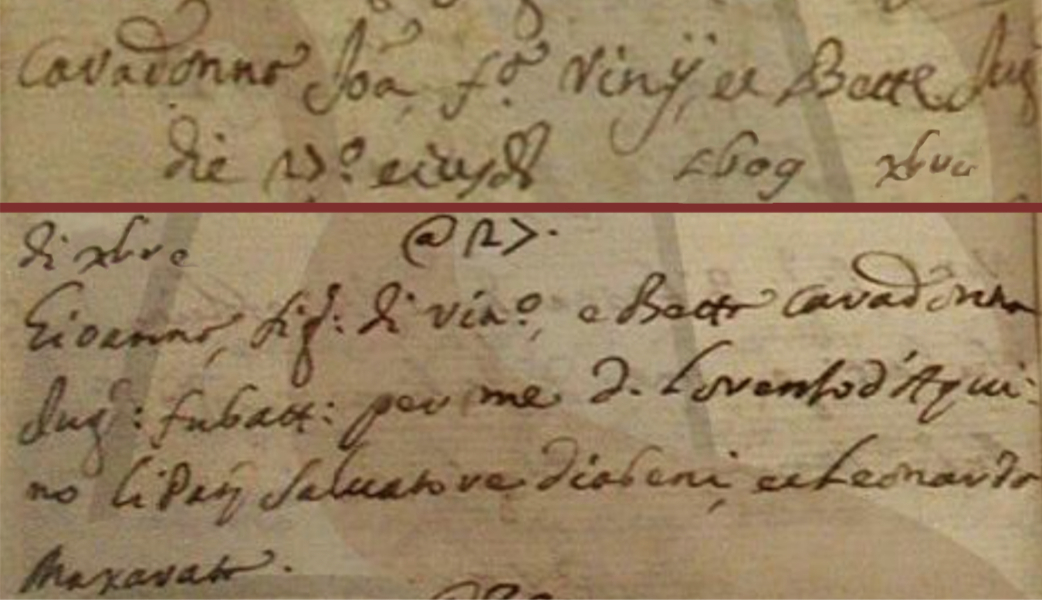 Cavadonna Joa. f.º Vinÿ, et Bette Jug
die 27º eiusd
di xbre @ 27.
Gioanne, fig: di Vin.º, e Betta Cavadonna
Jug: fu batt: per me D. Lorenso d'Aqui:
no li Patÿ Salvatore Diabeni, et Leonardo
Maxarato.